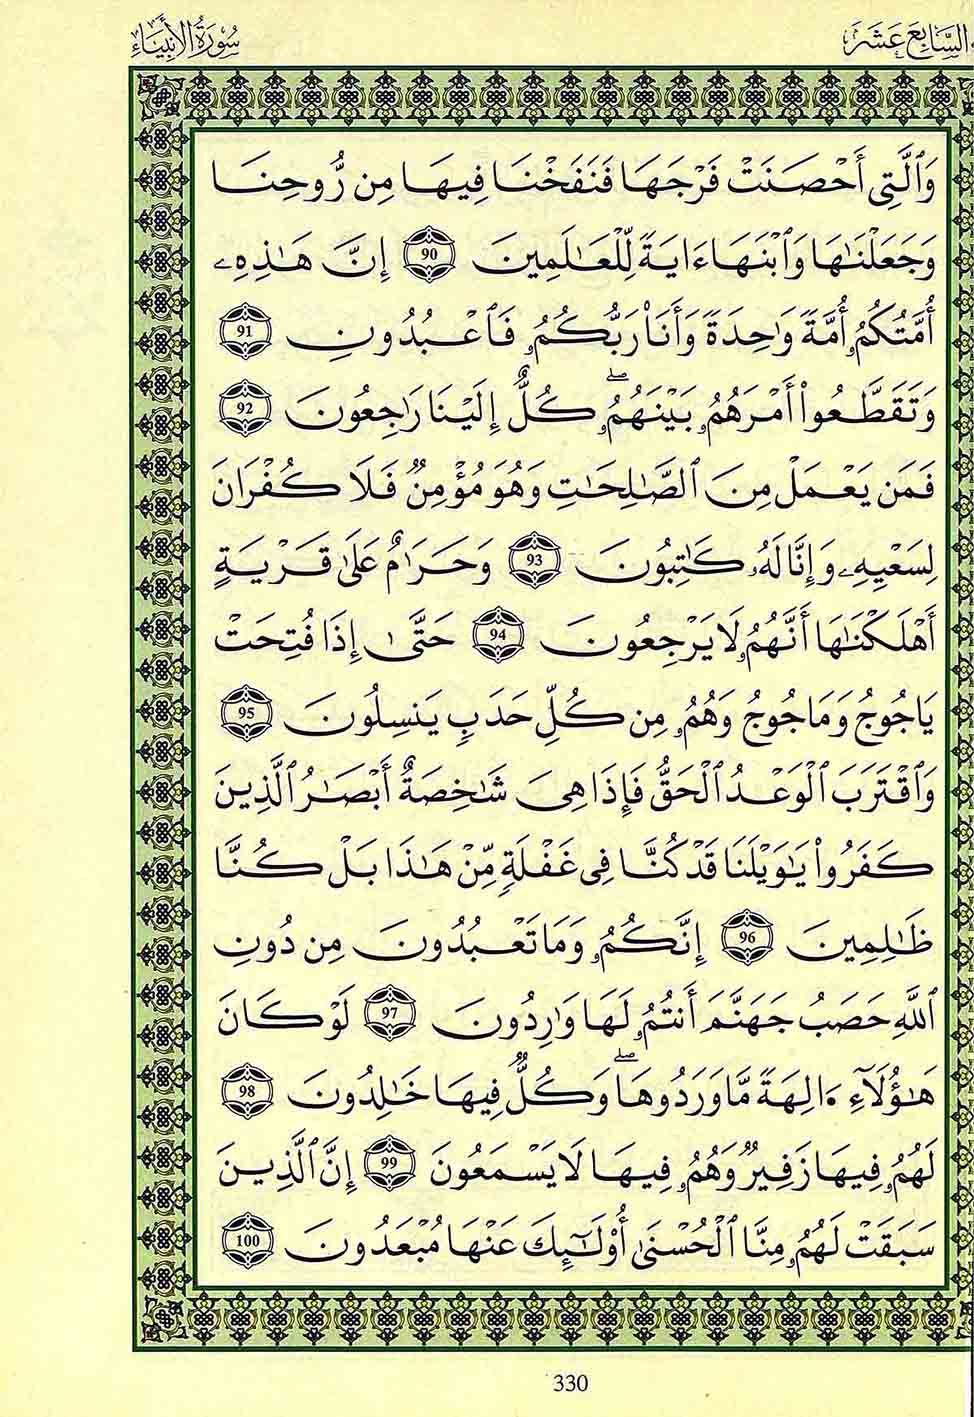 السَّابِعَ عَشَرَ
سُورَةُ الأَنبِيَاءِ
وَالَّتِي أَحْصَنَتْ فَرْجَهَا فَنَفَخْنَا فِيهَا مِن رُّوحِنَا
وَجَعَلْنَٰهَا وَٱبْنَهَا ءَايَةً لِّلْعَٰلَمِينَ 90 إِنَّ هَٰذِهِۦ
أُمَّتُكُمُۥ أُمَّةً وَٰحِدَةً وَأَنَا۠ رَبُّكُمُۥ فَٱعْبُدُونِ 91
وَتَقَطَّعُوا۟ أَمْرَهُمُۥ بَيْنَهُمُۥۖ كُلٌّ إِلَيْنَا رَٰجِعُونَ 92
فَمَن يَعْمَلْ مِنَ ٱلصَّٰلِحَٰتِ وَهُوَ مُؤْمِنٌ فَلَا كُفْرَانَ
لِسَعْيِهِۦ وَإِنَّا لَهُۥ كَٰتِبُونَ 93 وَحَرَٰمٌ عَلَىٰ قَرْيَةٍ
أَهْلَكْنَٰهَا أَنَّهُمُۥ لَا يَرْجِعُونَ 94 حَتَّىٰ إِذَا فُتِحَتْ
يَاجُوجُ وَمَاجُوجُ وَهُمُۥ مِن كُلِّ حَدَبٍ يَنسِلُونَ 95
وَٱقْتَرَبَ ٱلْوَعْدُ ٱلْحَقُّ فَإِذَا هِيَ شَٰخِصَةٌ أَبْصَٰرُ ٱلَّذِينَ
كَفَرُوا۟ يَٰوَيْلَنَا قَدْ كُنَّا فِي غَفْلَةٍ مِّنْ هَٰذَا بَلْ كُنَّا
ظَٰلِمِينَ 96 إِنَّكُمُۥ وَمَا تَعْبُدُونَ مِن دُونِ
ٱللَّهِ حَصَبُ جَهَنَّمَ أَنتُمُۥ لَهَا وَٰرِدُونَ 97 لَوْ كَانَ
هَٰؤُلَآءِ ءَالِهَةً مَّا وَرَدُوهَاۖ وَكُلٌّ فِيهَا خَٰلِدُونَ 98
لَهُمُۥ فِيهَا زَفِيرٌ وَهُمُۥ فِيهَا لَا يَسْمَعُونَ 99 إِنَّ ٱلَّذِينَ
سَبَقَتْ لَهُمُۥ مِنَّا ٱلْحُسْنَىٰ أُو۟لَٰٓئِكَ عَنْهَا مُبْعَدُونَ 100
330